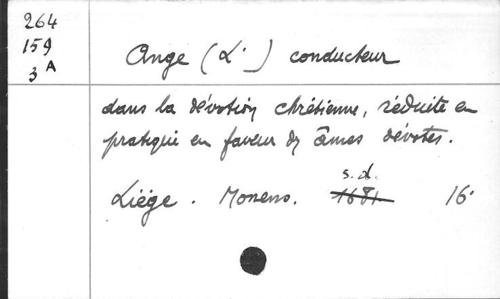 264
159
3 A
Ange (L') conducteur
dans la dévotion chrétienne, réduite en
pratique en faveur ds âmes dévotes.
s.d.
Liége. Moneno. 1681 16°